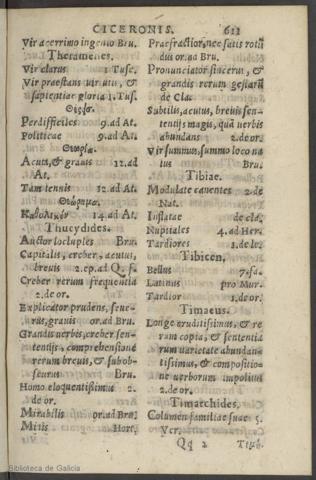 CICERONIS. 611
Vir acerrimo ingenio Bru.
Theramenes.
Vir clarus 1 Tusc.
Vir praestans uirtute, &
sapientiae gloria 1. Tus.
Perdifficiles 9. ad At.
Politicae 9. ad At.
Acuta, & grauis 12. ad
At.
Tam tennis 12. ad At.
14. ad At.
Thucydides.
Auctor locuples Bru.
Capitalis, creber, acutus,
breuis 2. ep. ad Q. f.
Creber rerum frequentia
2. de or.
Explicator prudens, seue-
rus, grauis or. ad Bru.
Grandis uerbis, creber sen-
tentijs, comprehensione
rerum breuis, & subob-
scurus Bru.
Homo eloquentißimus 2.
de or.
Mirabilis or. ad Bru.
Mitis Hort.
Praefractior, nec satis rotũ
dus or. ad Bru.
Pronunciator sincerus, &
grandis rerum gestarũ
de Cla.
Subtilis, acutus, breuis, sen-
tentijs magis, quã uerbis
abundans 2. de or.
Vir summus, summo loco na
tus Bru.
Tibiae.
Modulate canentes 2. de
Nat.
Inflatae de cla.
Nuptiales 4. ad Her.
Tardiores 1. de le.
Tibicen.
Bellus 7. fa.
Latinus pro Mur.
Tardior 1. de or.
Timaeus.
Longe eruditißimus, & re
rum copia, & sententia
rum uarietate abundan-
tißimus, & compositio-
ne uerborum impolitus
2. de or.
Timarchides.
Columen familiae suae 5.
Ver.
Qq 2 Timo.
Biblioteca de Galicia